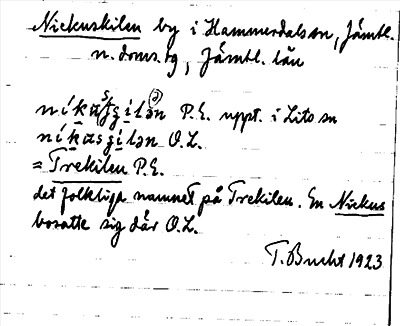 Nickuskilen by i Hammerdals sn, Jämtl.
n. doms. bg, Jämtl. län
P.E. uppt. i Lits sn
O.L.
= Trekilen P.E.
det folkliga namnet på Trekilen. En Nickus
bosatte sig där O.L.
T. Bucht 1923